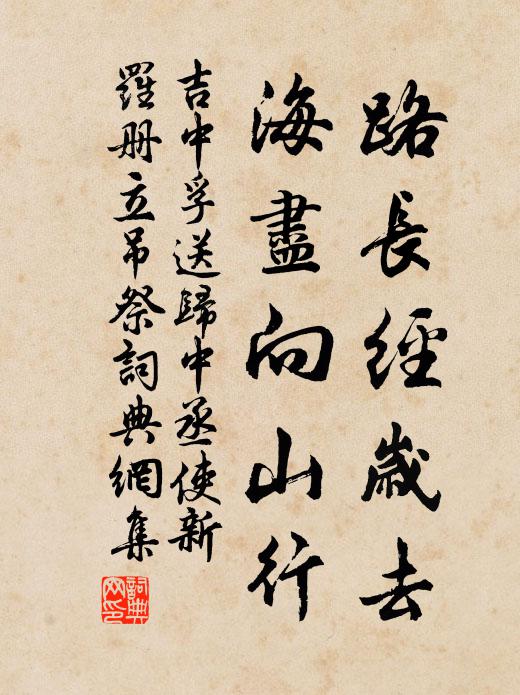 路長經歲去
海盡向山行
吉中孚送歸中丞使新
羅册立吊祭詞典網集
詞典
网印